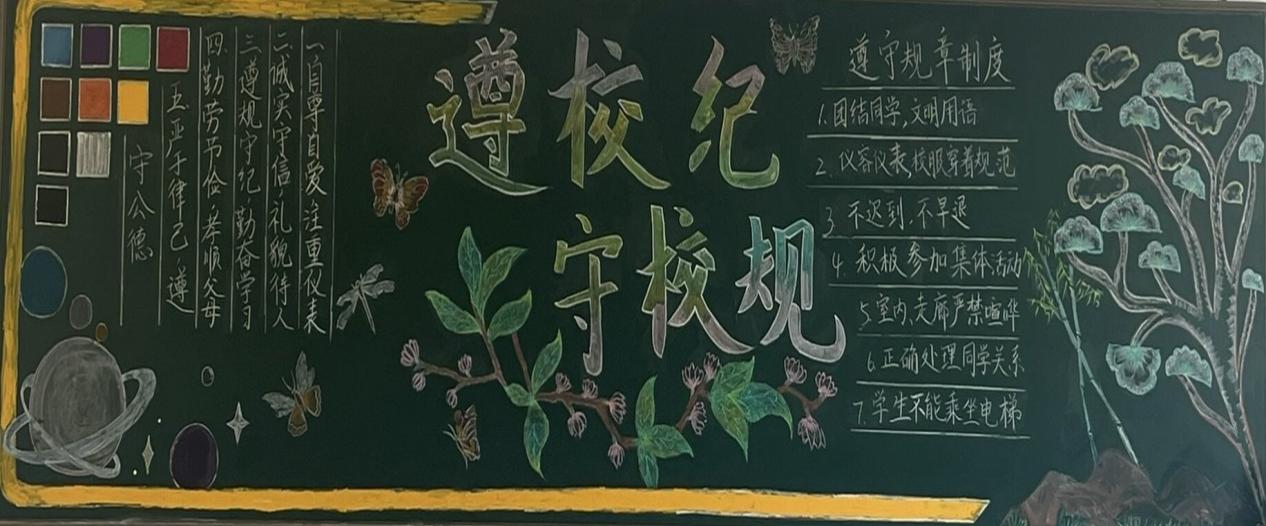 遵校纪
守校规
一自尊自爱·注重仪表
二诚实守信·礼貌待人
三遵规守纪·勤奋学习
四勤劳节俭·孝顺父母
五严于律己·遵
守公德
遵守规章制度
1.团结同学,文明用语
2.仪容仪表校服穿着规范
3.不迟到,不早退
4.积极参加集体活动
5.室内、走廊严禁喧哗
6.正确处理同学关系
7.学生不能乘坐电梯